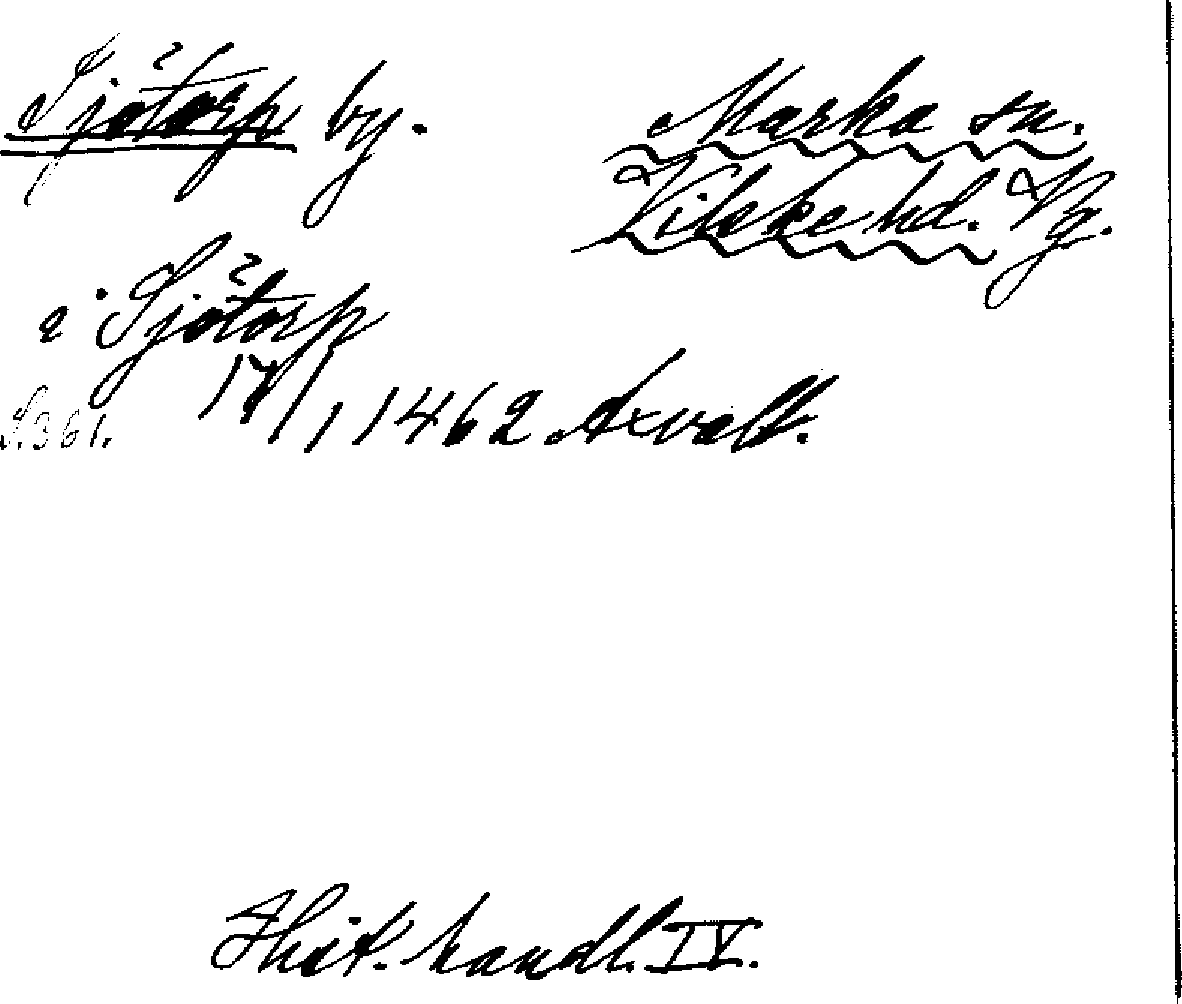 Sjötorp by.
Marka sn.
Vilske hd. Vg.
i Sjötorp
S. 361. 17/1 1462 Axvall.
Hist. handl. IV.